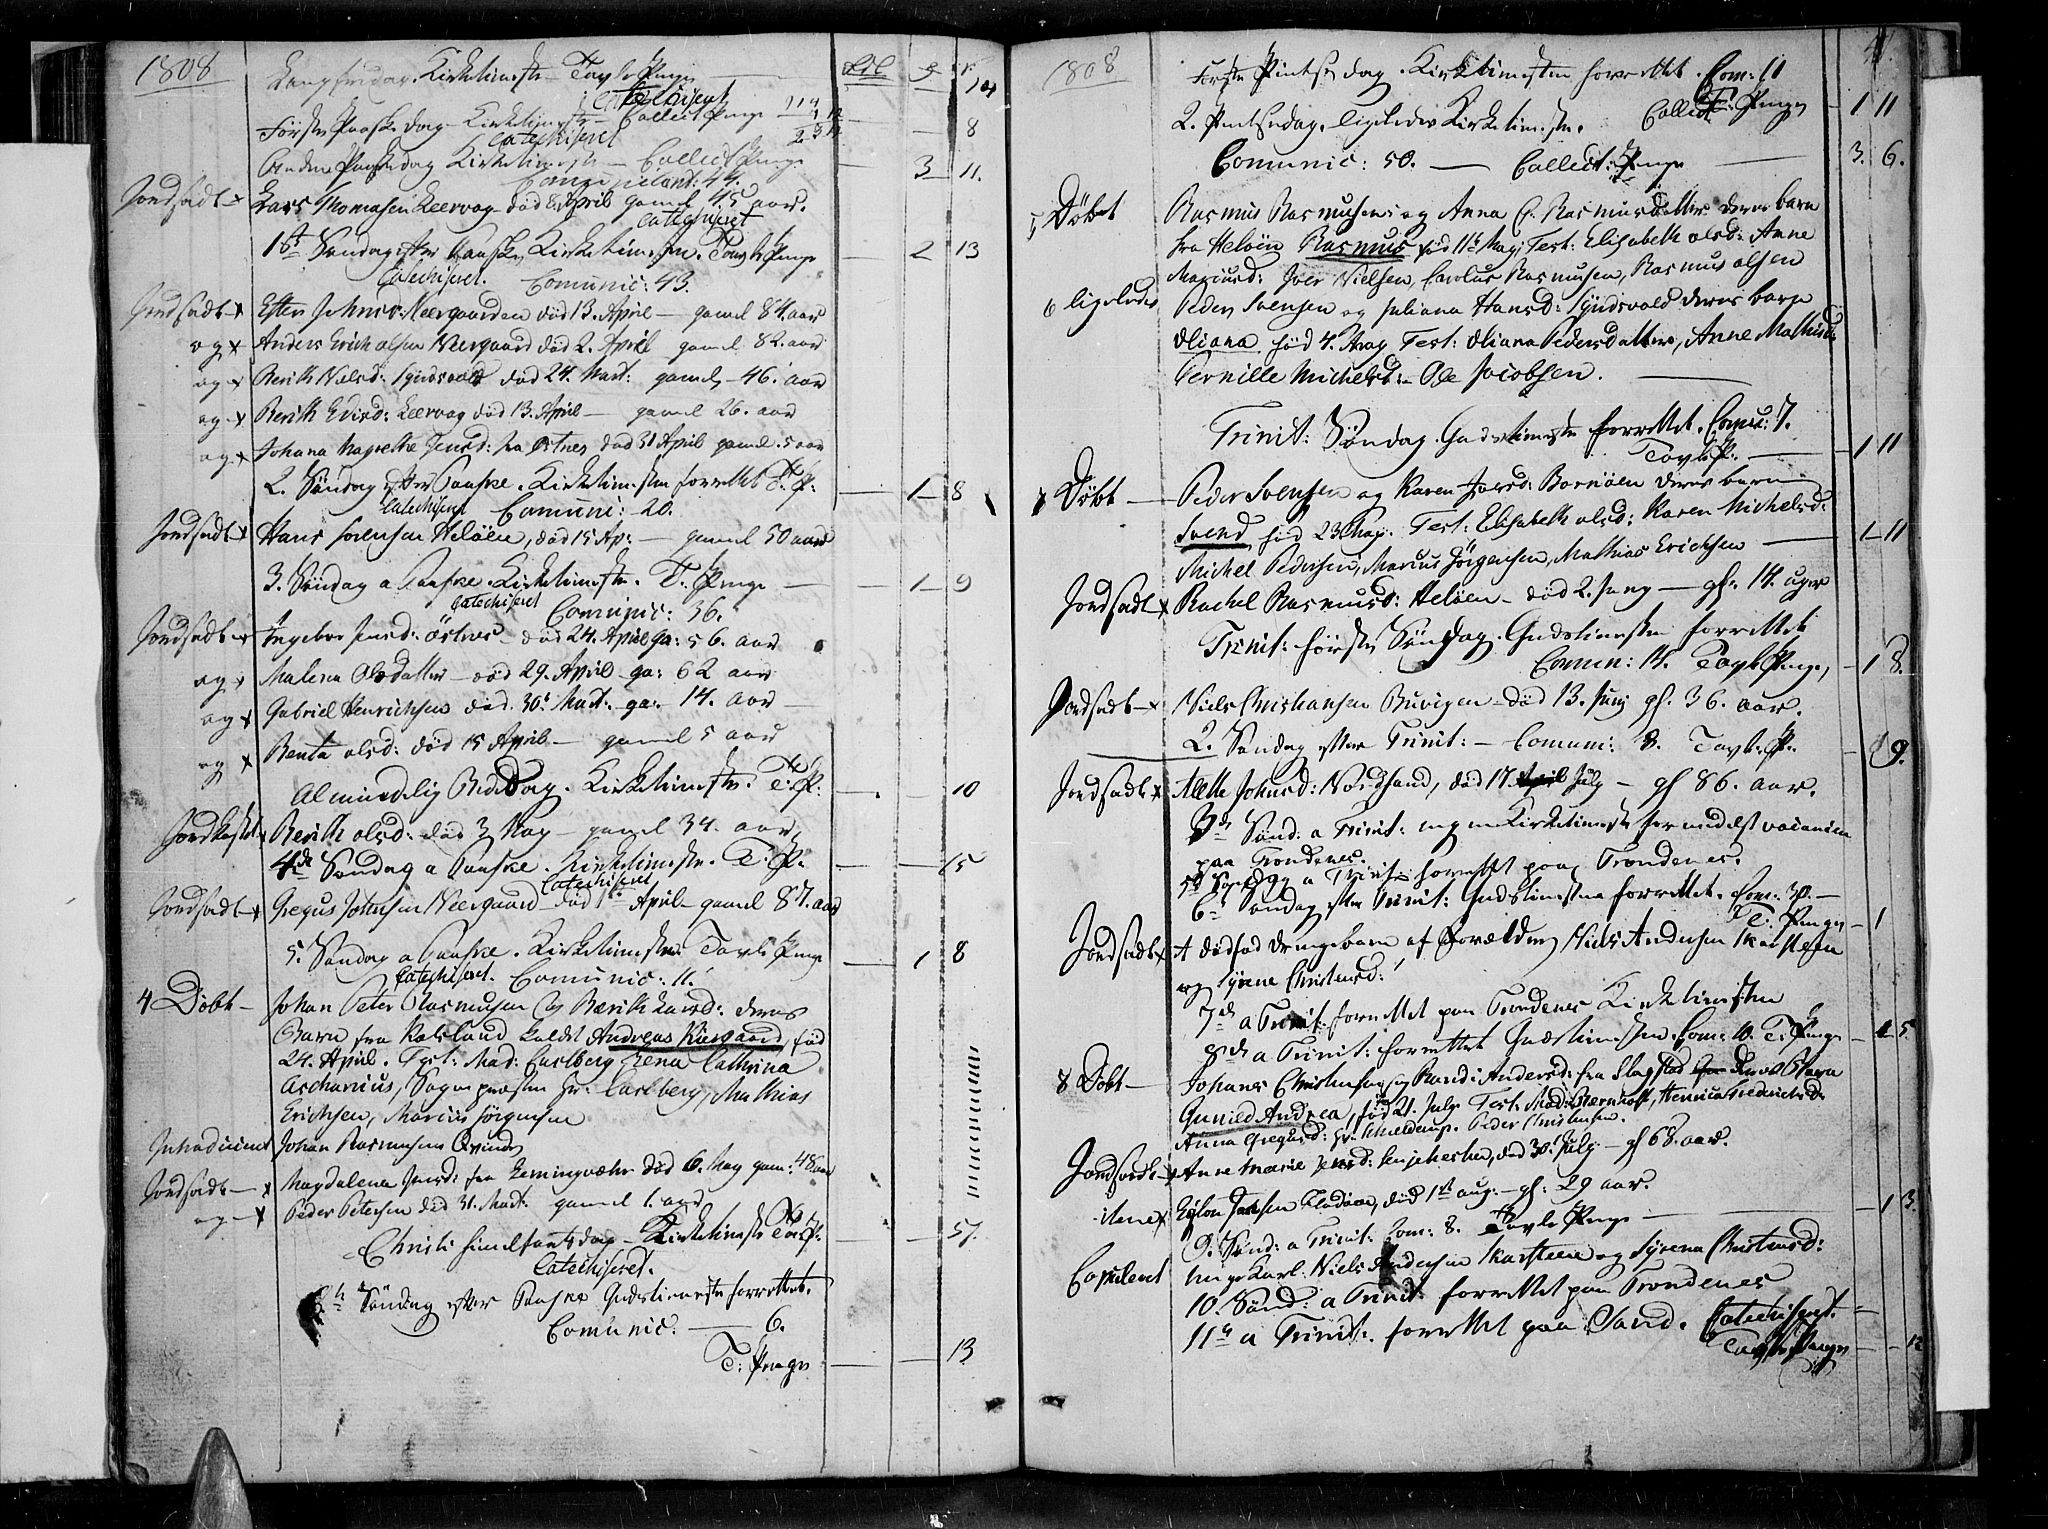 1808
Langfredag. Kirketienesten Tavle Penge 14
Catechiseret
Første Paaske dag Kirketieneste Collect Penge 8
Catechiseret
Anden Paaskedag Kirketieneste Collect Penge 3 11.
Comunicant: 44.
Jordfæstet Lars Thomasen Leervog død April gamel 45 aar.
Catechiseret
1ste Søndag efter Paaske Kirketienesten. Tavle Penge 2 13
Catechiseret. Comunic: 43.
Jordfæstet Ester Johns: Neergaarden død 13. April gamel 84. aar
og Anders Erich olsen Neergaard død 2. April gamel 82. aar
og Berith Nielsd: død 24. Mart: gamel 46. aar
og Berith Leervog død 13. April gamel 26. aar
og Johana Magrethe Jensd: fra død 31 April gamel 5 aar
2. Søndag efter Paaske. Kirketienesten forrettet T: P: 1 8
Catechiseret Comunic: 20.
Jordfæstet Hans Sørensen Heløen, død 15 Ap: gamel 50 aar
3. Søndag a Paaske. Kirketieneste. T: Penge 1 9
Catechiseret Comunic: 36.
Jordfæstet Ingebor Jensd: død 24. April ga: 56. aar
og Malena Olsdatter død 29. April ga: 62 aar
og Gabriel Henrichsen død 30t Mart: ga: 14. aar
og Benta olsd: død 15 April gamel 5 aar
Almindelig Bededag. Kirketieneste. T: P: 10
Jordkastet Berith olsd: død 3 May gamel 34. aar,
4de Søndag a Paaske. Kirketieneste. T: P: 15
Catechiseret
Jordfæstet Gregus Johnsen Neergaard død April gamel 87. aar
5. Søndag a Paaske. Kirketieneste Tavle Penge 1 8
Catechiseret. Comunic: 11.
4 Døbt Johan Peter Rasmusen og Berith Larsd: deres
Barn fra kaldet Andreas født
24. April. Test: Mad: Carlberg Lena Cathrina
Ascharius, Sogne præsten Hr: Carlberg, Mathias
Erichsen, Marcus Jørgensen
Introduceret Johan Rasmusens Qvinde
Jordfæstet Magdalena Jensd: fra død 6. May gam: 48 aar
og Peder Petersen død 31. Mart. gamel 1. aar
Christi himelfartsdag Kirketieneste T: P: 57.
Catechiseret.
6te Søndag efter Paaske Gudstieneste forrettet.
Comunic: 6.
T: Penge 13
1808
Første Pintse dag. Kirketienesten forrettet. Com: 11
T: Penge 1 11
2. Pintsedag. ligeledes Kirketieneste. Collect
Comunic: 50. Collect: Penge 3. 6.
5 Døbt Rasmus Rasmusen og Anna E. Rasmusdatter deres barn
fra Heløen Rasmus, født 11te May: Test: Elisabeth olsd: Anne
Mariusd: Iver Nielsen, Carolus Rasmusen, Rasmus olsen
6 ligeledes Peder Svensen og Juliana Hansd: deres barn
Oliana født 4. May Test: Oliana Pedersdatter, Anne Mathisd:
Pernille Michelsd: Ole Jacobsen.
Trinit: Søndag. Gudstieneste forrettet. Comu: 7.
Tavle P: 1 11
7 Døbt Peder Svensen og Karen Iversd: deres barn
Svend født 23 May. Test: Elisabeth olsd: Karen Michelsd:
Michel Pedersen, Marcus Jørgensen, Mathias Erichsen 1 11
Jordfæstet Rachel Rasmusd: Heløen død 2. Juny gl: 14. uger
Trinit: første Søndag. Gudstienesten forrettet
Comun: 14. Tavle Penge, 1 8.
Jordfæstet Niels Christiansen død 13. Juni gl. 36. aar.
2. Søndag efter Trinit: Comuni: 8. Tavl: P: 9.
Jordfæstet Aleth Johnsd: Nordsand, død 17. April July gl 86. aar.
3de Sønd: a Trinit: ingen Kirketieneste formedelst vacancen
paa Trondenes.
5te Søndag a Trinit: forrettet paa Trondenes.
6te Søndag efter Trinit: Gudstienesten forrettet. Com: 30.
T: Penge 1
Jordfæstet Et dødfød drengebarn af Forældre Niels Andersen Karsteen
og Syrene Christensd:
7de a Trinit: forrettet paa Trondenes Kirketienesten
8de a Trinit: forrettet Gudstienesten. Com: 10. T: Penge 5.
8 Døbt Johanes Christensen og Randi Andersd: fra Slagstad deres Barn
Gunild Andrea, født 21. July. Test: Mad: Bernhoft, Henrica Friederichsd:
Anna Gregusd: Peder Christensen.
Jordfæstet Anne Marie Jensd: Senjehesten, død 30. July gl 68. aar.
item Jensen død 1st aug: gl: 29 aar.
9. Sønd: a Trinit: Com: 8. Tavle Penge 1 3.
Copuleret unge Karl: Niels Andersen Karsteen og Syrena Christensd:
10. Sønd: a Trinit: forrettet paa Trondenes
11te a Trinit: forrettet paa Sand. Catechiseret.
Tavle Penge 12